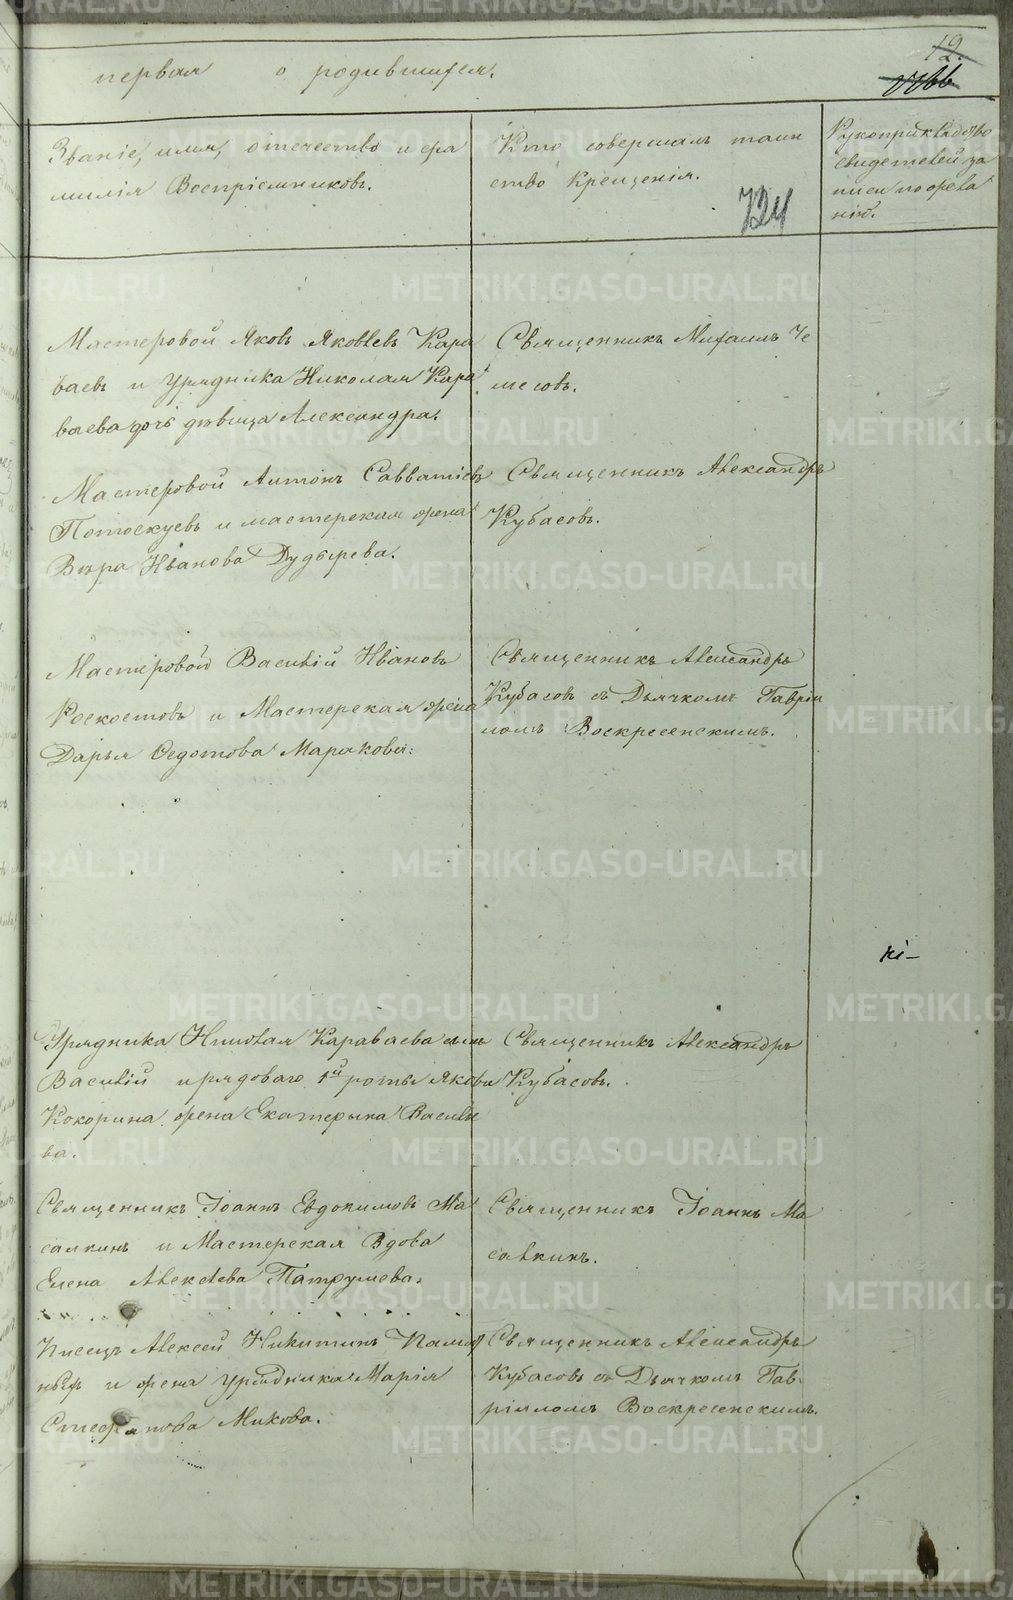 первая о родившихся.
12.
Званіе, имя, отечество и фа
милія Воспріемниковъ.
Кто совершалъ таин
ство Крещенія.
724
Рукоприкладство
свидетелей за
писи по жела
нію.
Мастеровой Яковъ Яковлевъ Кара
ваевъ и Урядника Николая Кара
ваева дочь дѣвица Александра.
Священникъ Михаилъ Че
месовъ.
Мастеровой Антонъ Савватіевъ
Потоскуевъ и мастерская жена
Вѣра Иванова Дудырева.
Священникъ Александръ
Кубасовъ.
Мастеровой Василій Ивановъ
Роскостовъ и Мастерская жена
Дарья Федотова Маракова.
Священникъ Александръ
Кубасовъ съ Дьячкомъ Гавріи
ломъ Воскресенскимъ.
Урядника Николая Караваева сынъ
Василій и рядоваго 1й роты Якова
Кокорина жена Екатерина Василье
ва.
Священникъ Александръ
Кубасовъ.
Священникъ Іоаннъ Евдокимовъ Ма
салкинъ и Мастерская Вдова
Елена Алексѣева Патрушева.
Священникъ Іоаннъ Ма
салкинъ.
Писецъ Алексей Никитинъ
и жена урядника Марія
Стефанова Микова.
Священникъ Александръ
Кубасовъ съ Дьячкомъ Гав-
ріиломъ Воскресенскимъ.
METRIKI.GASO-URAL.RU